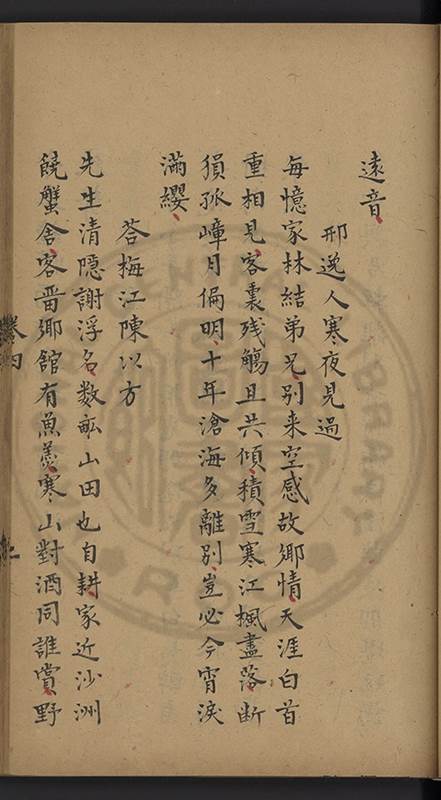 遠音
邢逸人寒夜見過
每憶家林結弟兄别来空感故鄉情天涯白首
重相見客囊残觴且共傾積雪寒江楓盡落斷
猿孤嶂月偏明十年滄海多離别豈必今宵淚
滿纓
荅梅江陳以方
先生清隱謝浮名数畝山田也自耕家近沙洲
饒蟹舍客畱鄉館有魚羹寒山對酒同誰賞野